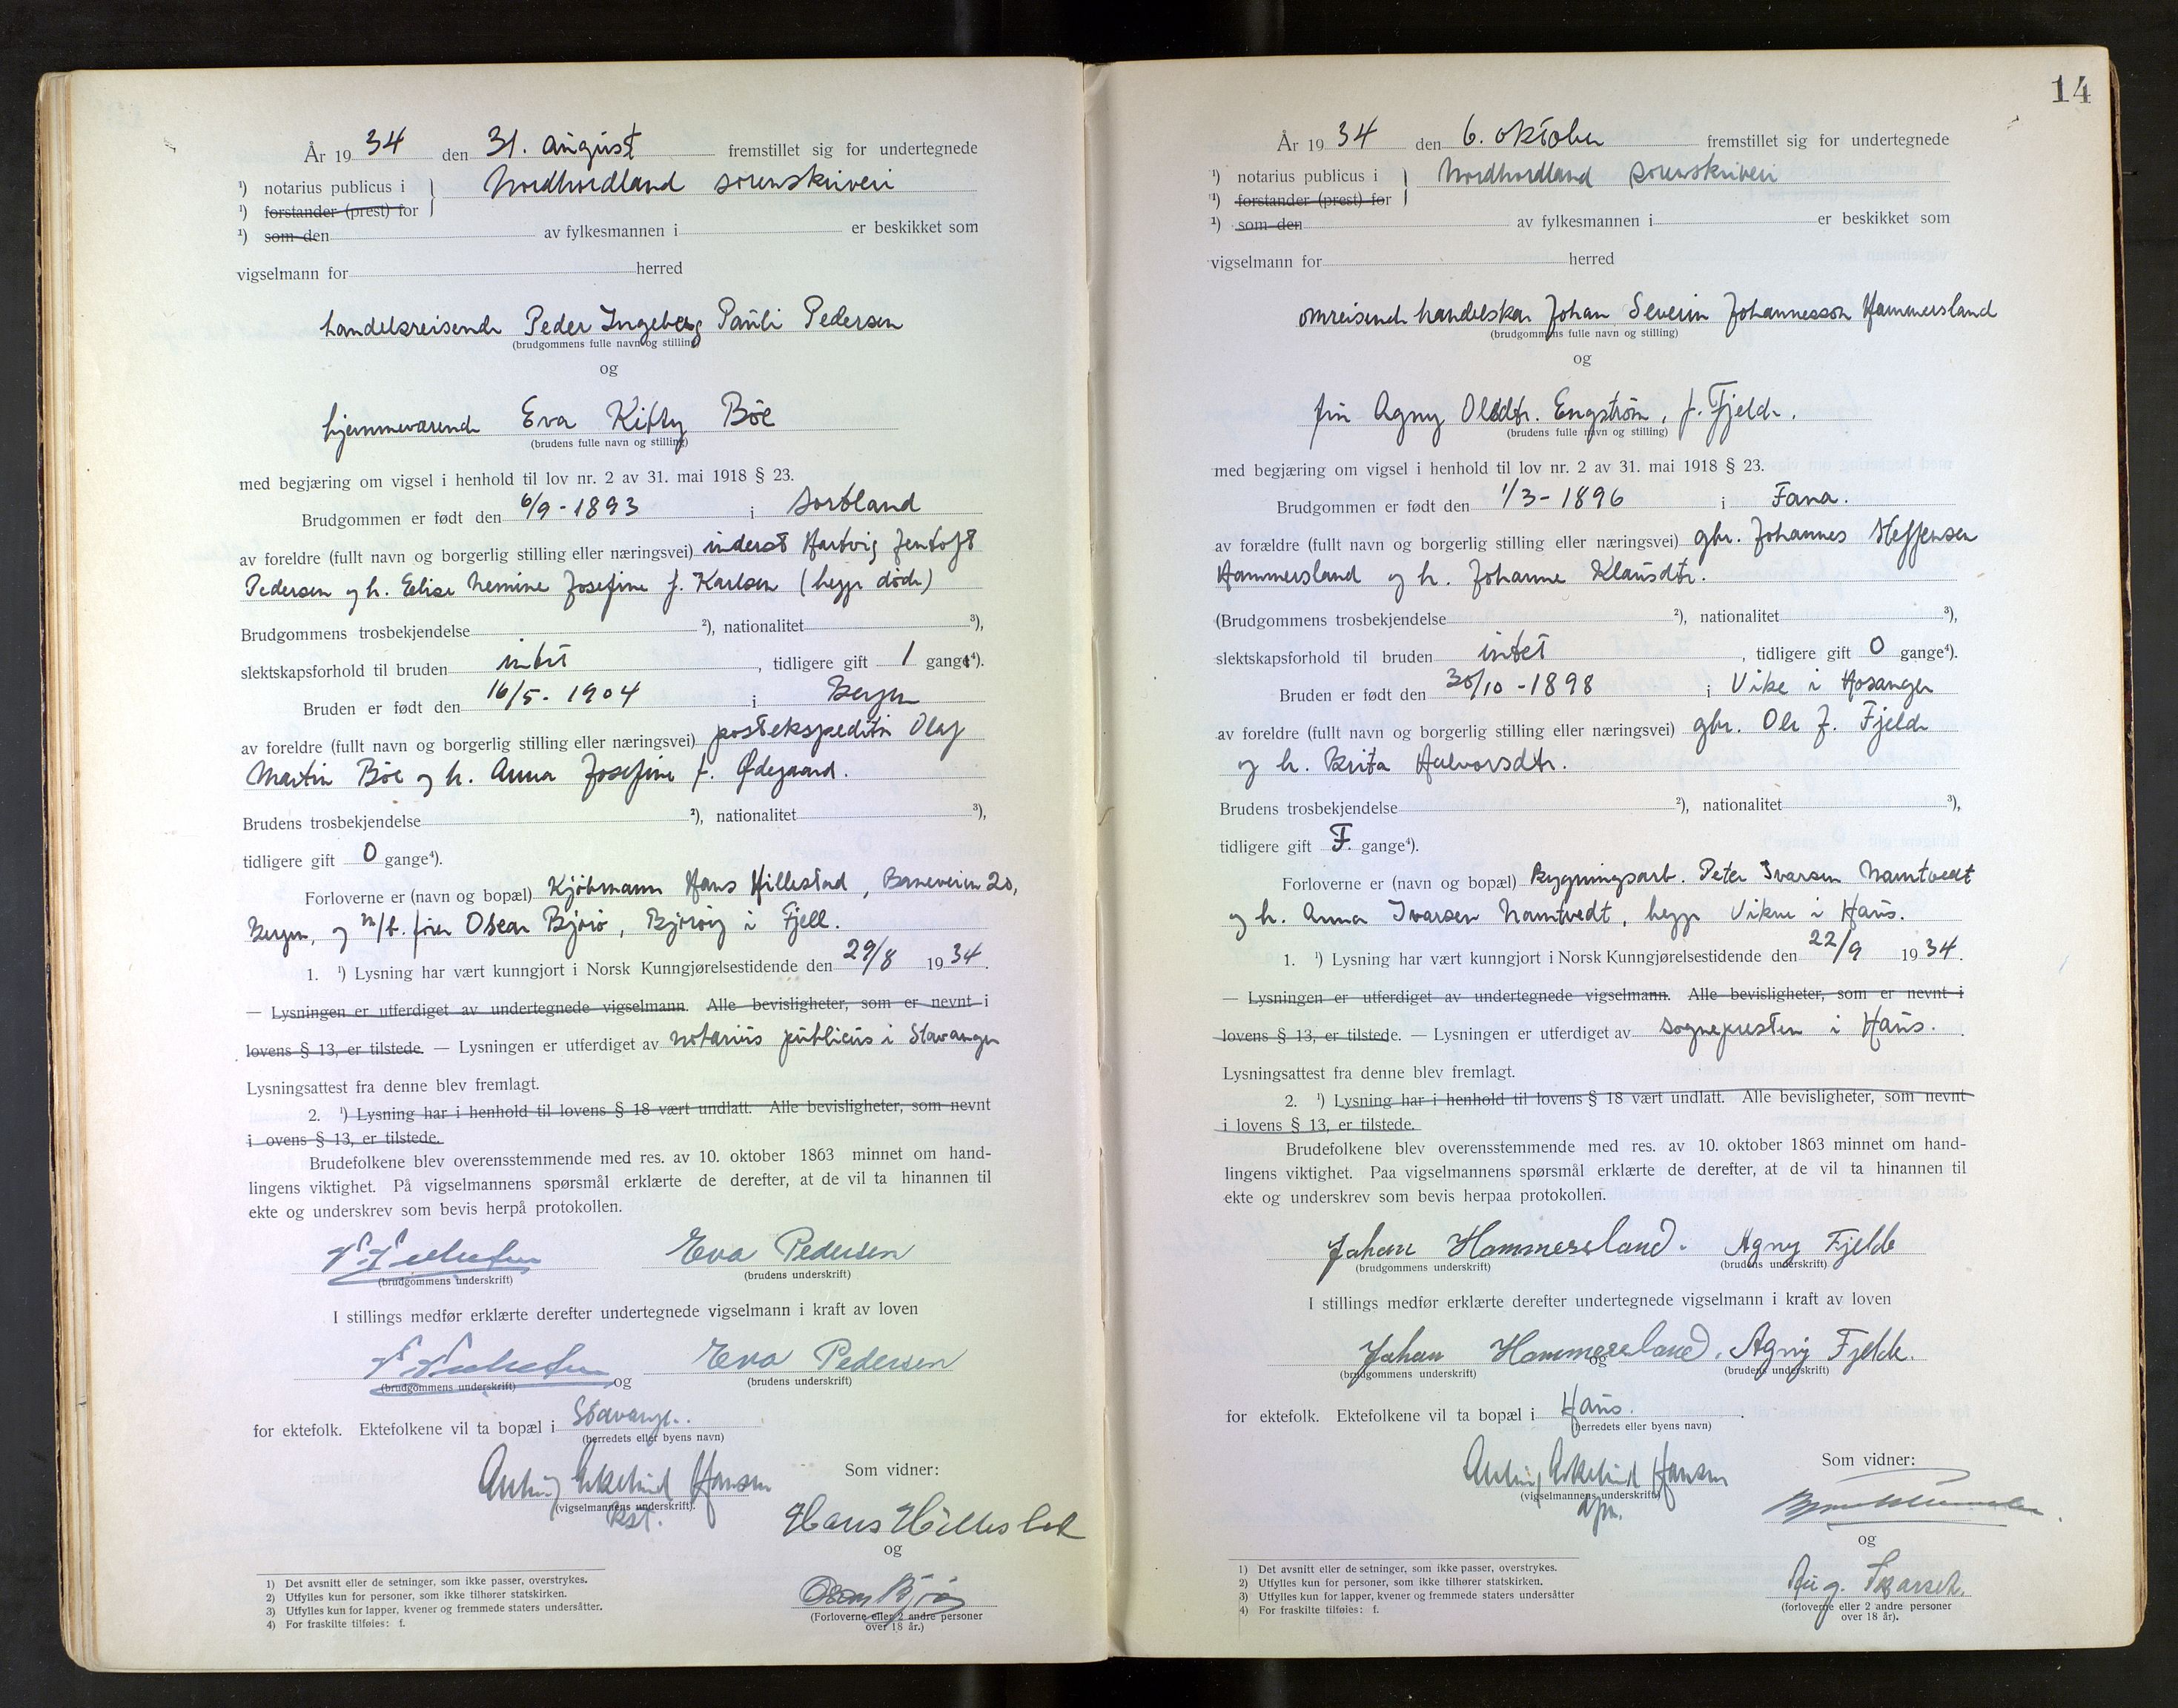 År 1934 den 31. august fremstillet sig for undertegnede
¹) notarius publicus i Nordhordland sorenskriveri
¹) forstander (prest) for
¹) som den av fylkesmannen i er beskikket som
vigselmann for herred
handelsreisende Peder Ingeberg Pauli Pedersen
(brudgommens fulle navn og stilling)
og
hjemmeværende Eva Kitty Böe
(brudens fulle navn og stilling)
med begjæring om vigsel i henhold til lov nr. 2 av 31. mai 1918 § 23.
Brudgommen er født den 6/9 - 1893 i Sortland
av foreldre (fullt navn og borgerlig stilling eller næringsvei) inderst Hartvig Jentoft
Pedersen og h. Elise Nemine Josefine f. Karlsen (begge døde)
Brudgommens trosbekjendelse ²), nationalitet ³),
slektskapsforhold til bruden intet, tidligere gift 1 gang⁴).
Bruden er født den 16/5 - 1904 i Bergen
av foreldre (fullt navn og borgerlig stilling eller næringsvei) postekspeditør Olaf
Martin Böe og h. Anna Josefine f. Ødegaard.
Brudens trosbekjendelse ²), nationalitet ³),
tidligere gift 0 gange⁴).
Forloverne er (navn og bopæl) Kjøbmann Hans Hillestad, Baneveien 20,
Bergen, og m/b. fører Oscar Bjorö, Bjorøy i Fjell.
1. ¹) Lysning har vært kunngjort i Norsk Kunngjørelsestidende den 29/8 1934.
— Lysningen er utferdiget av undertegnede vigselmann. Alle bevisligheter, som er nevnt i
lovens § 13, er tilstede. — Lysningen er utferdiget av notarius publicus i Stavanger
Lysningsattest fra denne blev fremlagt.
2. ¹) Lysning har i henhold til lovens § 18 vært undlatt. Alle bevisligheter, som nevnt
i ovens § 13, er tilstede.
Brudefolkene blev overensstemmende med res. av 10. oktober 1863 minnet om hand-
lingens viktighet. På vigselmannens spørsmål erklærte de derefter, at de vil ta hinannen til
ekte og underskrev som bevis herpå protokollen.
Eva Pedersen
(brudgommens underskrift) (brudens underskrift)
I stillings medfør erklærte derefter undertegnede vigselmann i kraft av loven
Eva Pedersen
(brudgommens underskrift) og (brudens underskrift)
for ektefolk. Ektefolkene vil ta bopæl i Stavanger.
(herredets eller byens navn)
Hansen
(vigselmannens underskrift).
kst.
Som vidner:
Hans Hillestad
og
Oscar Bjorö
(Forloverne eller 2 andre personer
over 18 år.)
1) Det avsnitt eller de setninger, som ikke passer, overstrykes.
2) Utfylles kun for personer, som ikke tilhører statskirken.
3) Utfylles kun for lapper, kvener og fremmede staters undersåtter.
4) For fraskilte tilføies: f.
14
År 1934 den 6. oktober fremstillet sig for undertegnede
¹) notarius publicus i Nordhordland sorenskriveri
¹) forstander (prest) for
¹) som den av fylkesmannen i er beskikket som
vigselmann for herred
omreisende handelskar Johan Severin Johannesson Hammersland
(brudgommens fulle navn og stilling)
og
fru Agny Olsdtr. Engström, f. Fjelde.
(brudens fulle navn og stilling)
med begjæring om vigsel i henhold til lov nr. 2 av 31. mai 1918 § 23.
Brudgommen er født den 1/3 - 1896 i Fana.
av forældre (fullt navn og borgerlig stilling eller næringsvei) gbr. Johannes Steffensen
Hammersland og h. Johanne Klausdtr.
(Brudgommens trosbekjendelse ²), nationalitet ³),
slektskapsforhold til bruden intet, tidligere gift 0 gange⁴).
Bruden er født den 30/10 - 1898 i Vike i Hosanger
av foreldre (fullt navn og borgerlig stilling eller næringsvei) gbr. Ole J. Fjelde
og h. Brita Halvorsdtr.
Brudens trosbekjendelse ²), nationalitet ³),
tidligere gift F. gange⁴).
Forloverne er (navn og bopæl) Bygningsarb. Peter Ivarsen Namtvedt
og h. Anna Ivarsen Namtvedt, begge Vikne i Haus.
1. ¹) Lysning har vært kunngjort i Norsk Kunngjørelsestidende den 22/9 1934.
— Lysningen er utferdiget av undertegnede vigselmann. Alle bevisligheter, som er nevnt i
lovens § 13, er tilstede. — Lysningen er utferdiget av sognepresten i Haus.
Lysningsattest fra denne blev fremlagt.
2. ¹) Lysning har i henhold til lovens § 18 vært undlatt. Alle bevisligheter, som nevnt
i lovens § 13, er tilstede.
Brudefolkene blev overensstemmende med res. av 10. oktober 1863 minnet om hand-
lingens viktighet. Paa vigselmannens spørsmål erklærte de derefter, at de vil ta hinannen til
ekte og underskrev som bevis herpaa protokollen.
Johan Hammersland. Agny Fjelde
(brudgommens underskrift) (brudens underskrift)
I stillings medfør erklærte derefter undertegnede vigselmann i kraft av loven
Johan Hammersland. Agny Fjelde.
(brudgommens underskrift) og (brudens underskrift)
for ektefolk. Ektefolkene vil ta bopæl i Haus.
(herredets eller byens navn)
Hansen
(vigselmannens underskrift)
Som vidner:
og
Aug.
(forloverne eller 2 andre personer
over 18 år).
1) Det avsnitt eller de setninger, som ikke passer, overstrykes.
2) Utfylles kun for personer, som ikke tilhører statskirken.
3) Utfylles kun for lapper, kvener og fremmede staters undersåtter
4) For fraskilte tilføies: f.